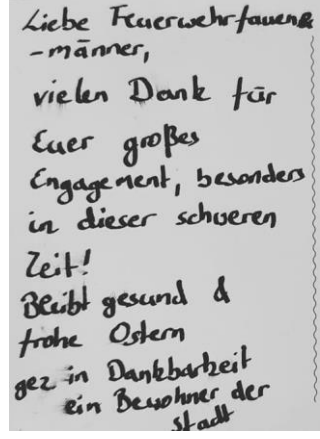 Liebe Feuerwehrfauen&
-männer,
vielen Dank für
Euer großes
Engagement, besonders
in dieser schweren
Zeit!
Bleibt gesund &
frohe Ostern
gez in Dankbarkeit
ein Bewohner der
Stadt